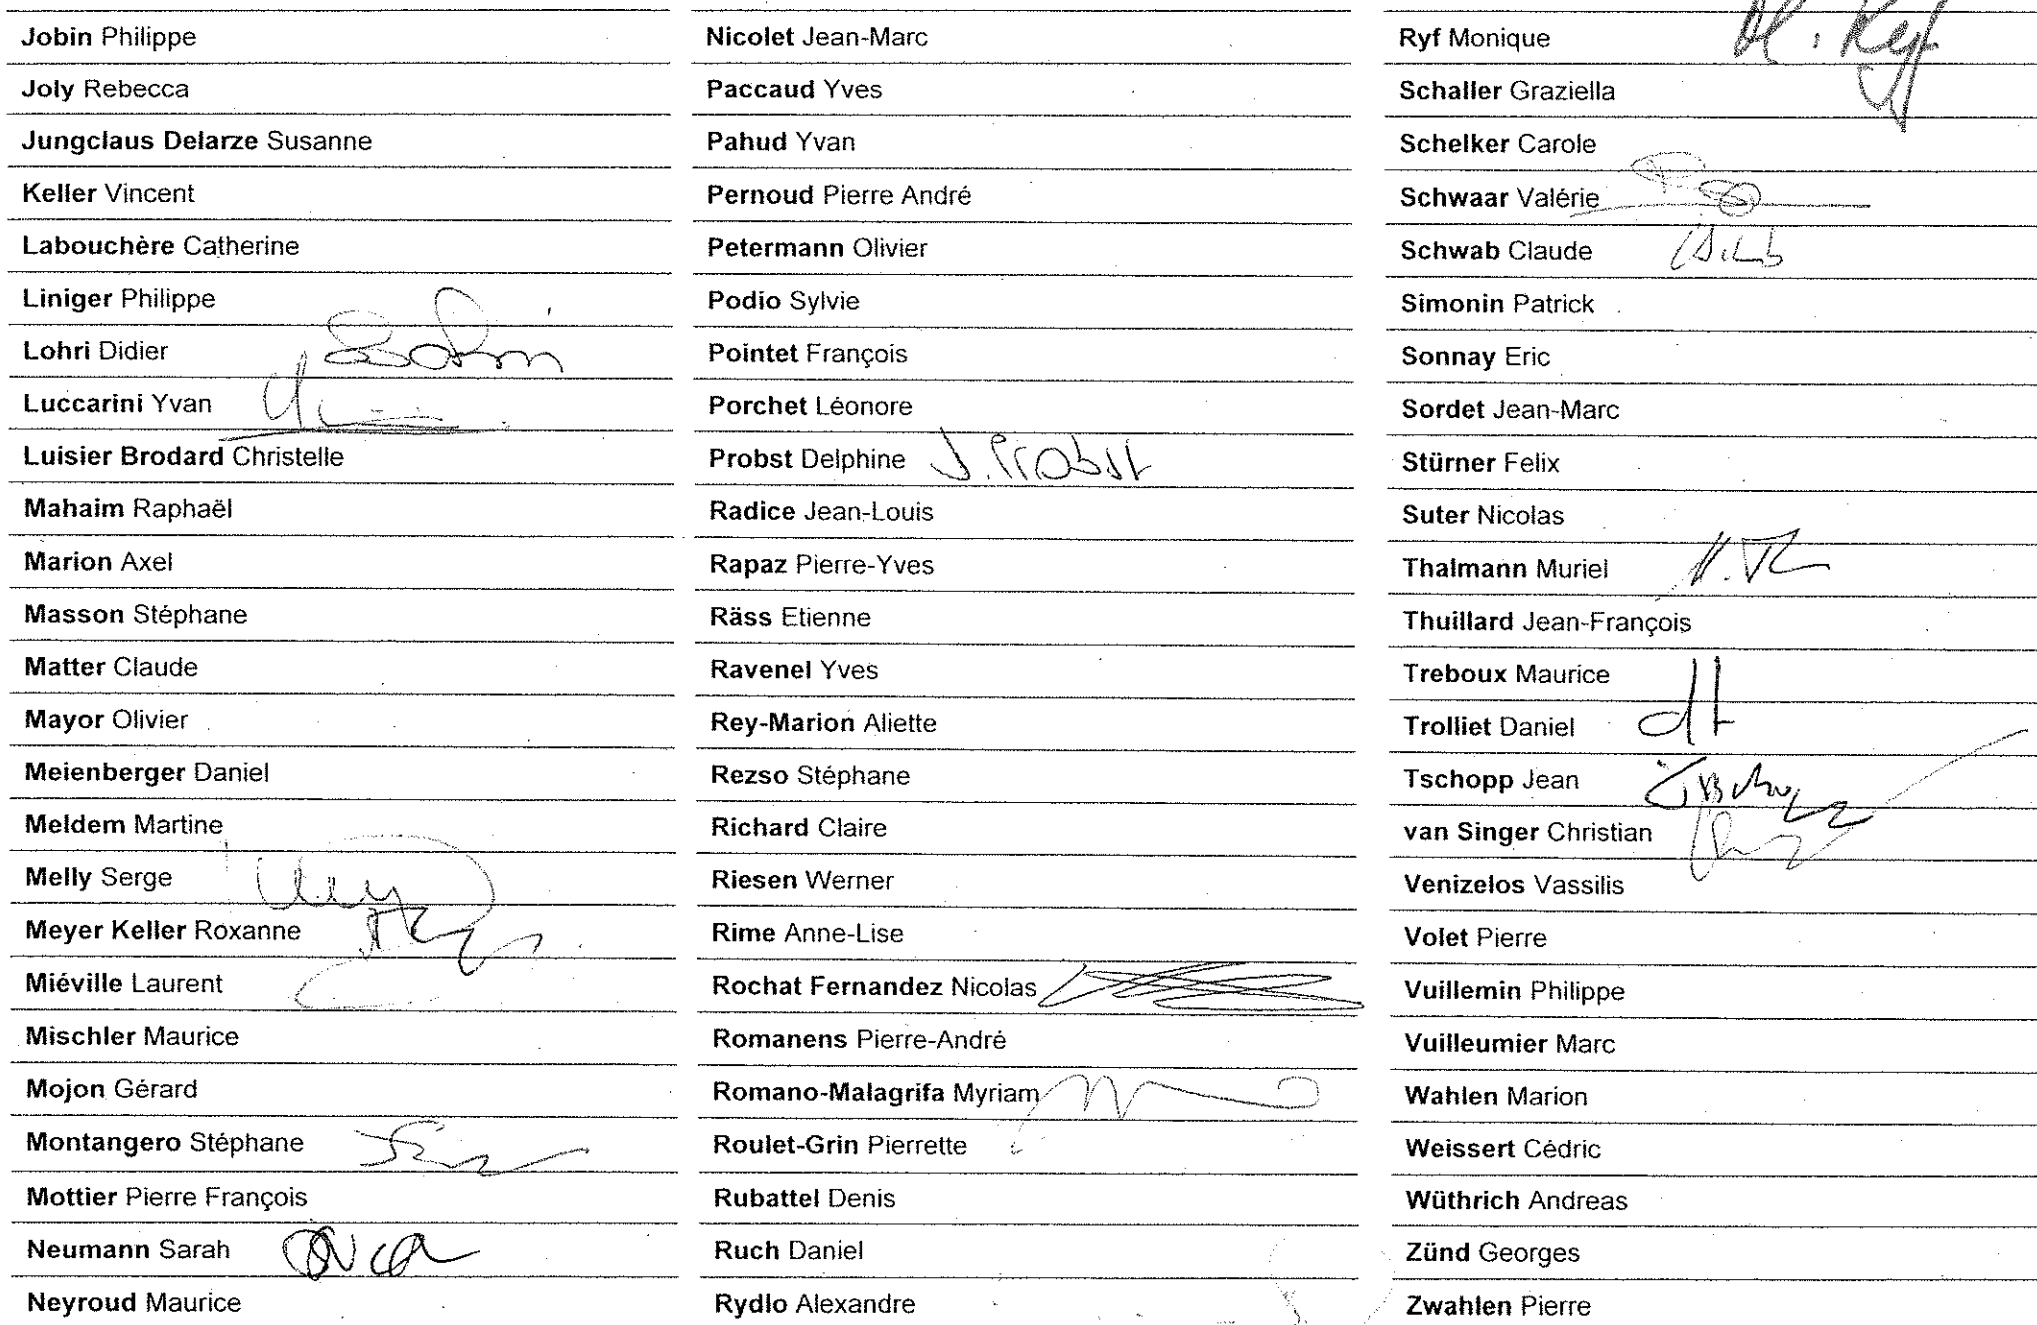 Jobin Philippe
Joly Rebecca
Jungclaus Delarze Susanne
Keller Vincent
Labouchère Catherine
Liniger Philippe
Lohri Didier
Luccarini Yvan
Luisier Brodard Christelle
Mahaim Raphaël
Marion Axel
Masson Stéphane
Matter Claude
Mayor Olivier
Meienberger Daniel
Meldem Martine
Melly Serge
Meyer Keller Roxanne
Miéville Laurent
Mischler Maurice
Mojon Gérard
Montangero Stéphane
Mottier Pierre François
Neumann Sarah
Neyroud Maurice
Nicolet Jean-Marc
Paccaud Yves
Pahud Yvan
Pernoud Pierre André
Petermann Olivier
Podio Sylvie
Pointet François
Porchet Léonore
Probst Delphine J. Probst
Radice Jean-Louis
Rapaz Pierre-Yves
Räss Etienne
Ravenel Yves
Rey-Marion Aliette
Rezso Stéphane
Richard Claire
Riesen Werner
Rime Anne-Lise
Rochat Fernandez Nicolas
Romanens Pierre-André
Romano-Malagrifa Myriam
Roulet-Grin Pierrette
Rubattel Denis
Ruch Daniel
Rydlo Alexandre
Ryf Monique M. Ryf
Schaller Graziella
Schelker Carole
Schwaar Valérie
Schwab Claude
Simonin Patrick
Sonnay Eric
Sordet Jean-Marc
Stürner Felix
Suter Nicolas
Thalmann Muriel
Thuillard Jean-François
Treboux Maurice
Trolliet Daniel dt
Tschopp Jean
van Singer Christian
Venizelos Vassilis
Volet Pierre
Vuillemin Philippe
Vuilleumier Marc
Wahlen Marion
Weissert Cédric
Wüthrich Andreas
Zünd Georges
Zwahlen Pierre